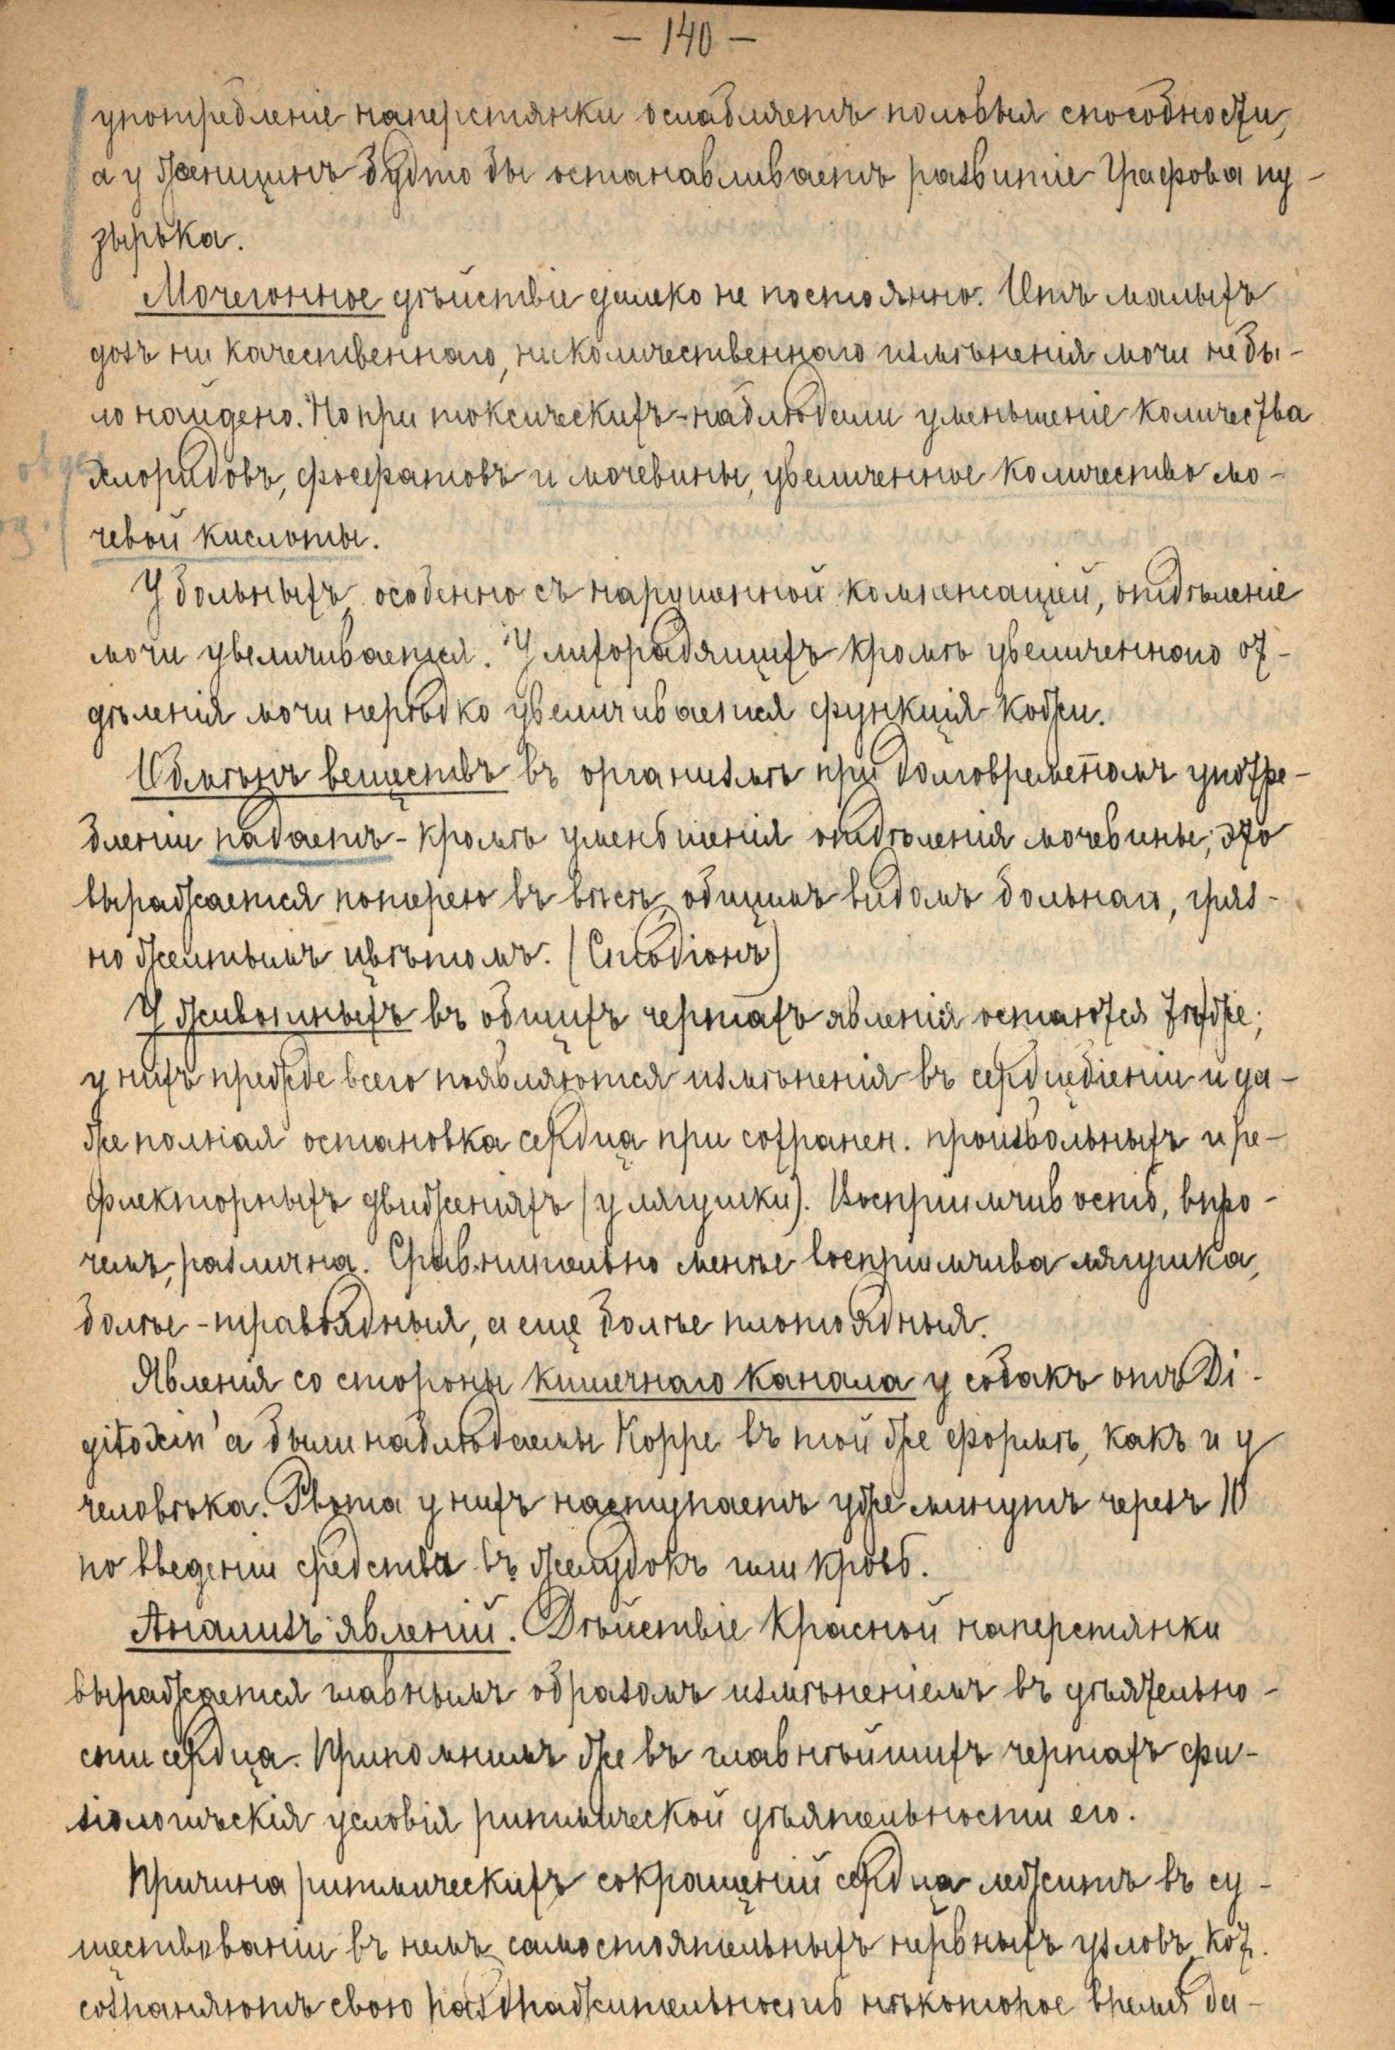 — 140 —
употребленіе наперстянки ослабляетъ половыя способности,
а у женщинъ будто бы останавливаетъ развитіе Графова пу-
зырька.
Мочегонное дѣйствіе далеко не постоянно. Отъ малыхъ
дозъ ни качественнаго, ни количественнаго измѣненія мочи не бы-
ло найдено. Но при токсическихъ - наблюдали уменьшеніе количества
хлоридовъ, фосфатовъ и мочевины, увеличенное количество мо-
чевой кислоты.
У больныхъ, особенно съ нарушенной компенсаціей, отдѣленіе
мочи увеличивается. У лихорадящихъ кромѣ увеличеннаго от-
дѣленія мочи нерѣдко увеличивается функція кожи.
Обмѣнъ веществъ въ организмѣ при долговременномъ употре-
бленіи падаетъ - кромѣ уменьшенія отдѣленія мочевины, это
выражается потерею въ вѣсѣ, общимъ видомъ больнаго, гряз-
но желтымъ цвѣтомъ. (Стадіонъ)
У животныхъ въ общихъ чертахъ явленія остаются тѣ же;
у нихъ прежде всего появляются измѣненія въ сердцебіеніи и да-
же полная остановка сердца при сохранен. произвольныхъ и ре-
флекторныхъ движеніяхъ (у лягушки). Воспріимчивость, впро-
чемъ, различна. Сравнительно менѣе воспріимчива лягушка,
болѣе - травоядныя, а еще болѣе плотоядныя.
Явленія со стороны кишечнаго канала у собакъ отъ Di-
gitoxin'а были наблюдаемы Koppe въ той же формѣ, какъ и у
человѣка. Рвота у нихъ наступаетъ уже минутъ черезъ 10
по введеніи средства въ желудокъ или кровь.
Анализъ явленій. Дѣйствіе красной наперстянки
выражается главнымъ образомъ измѣненіемъ въ дѣятельно-
сти сердца. Припомнимъ же въ главнѣйшихъ чертахъ фи-
зіологическія условія ритмической дѣятельности его.
Причина ритмическихъ сокращеній сердца лежитъ въ су-
ществованіи въ немъ самостоятельныхъ нервныхъ узловъ, кот.
сохраняютъ свою раздражительность нѣкоторое время да-